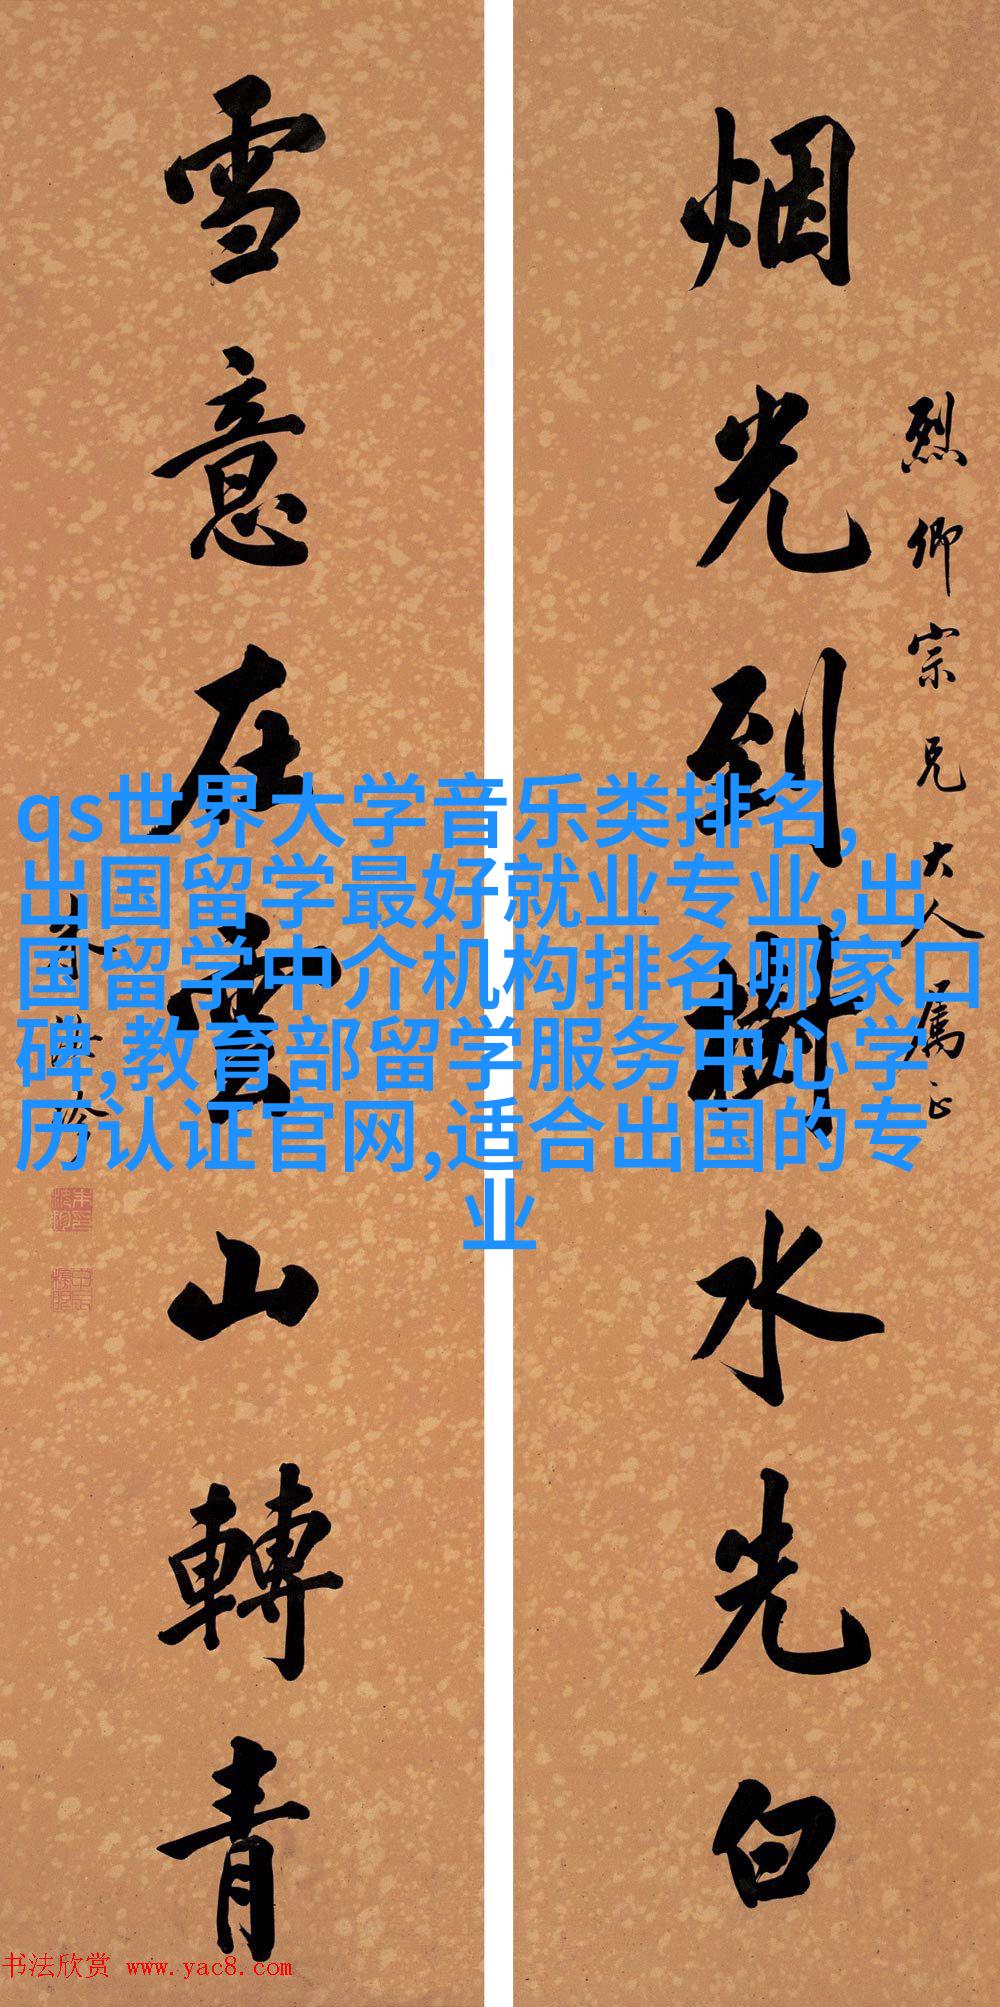 烟光到树水先白
烈卿宗兄大人属正
雪意在云山轉青
qs世界大学音乐类排名,
出国留学最好就业专业,出
国留学中介机构排名哪家口
碑,教育部留学服务中心学
历认证官网,适合出国的专
业
书法欣赏 www.yac8.com